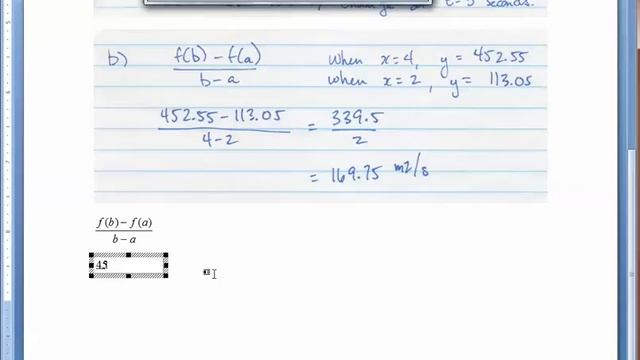 change at t=3 seconds.
b) f(b) - f(a) / b - a when x=4, y = 452.55
when x=2, y = 113.05
452.55 - 113.05 / 4 - 2 = 339.5 / 2
= 169.75 m2/s
f(b) - f(a) / b - a
45